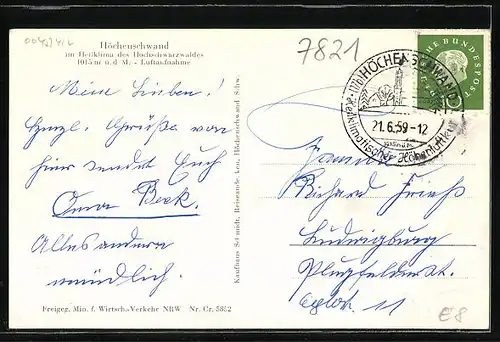 00427414
Höchenschwand
im Heilklima des Hochschwarzwaldes
1015 m ü. d. M. - Luftaufnahme
7821
Meine Lieben!
Herzl. Grüße von
hier sendet Euch
Oma Beck.
Alles andere
mündlich.
Freigeg. Min. f. Wirtsch.-Verkehr NRW Nr. Cr. 5882
Kaufhaus Schmidt, Reiseande-Ken, Höchenschwand Schw.
(17b) HÖCHENSCHWAND
21.6.59-12
Heilklimatischer Höhenluftkurort
DEUTSCHE BUNDESPOST
10
Familie
Richard Frieß
Ludwigsburg
Pflugfelderstr.
11
E8